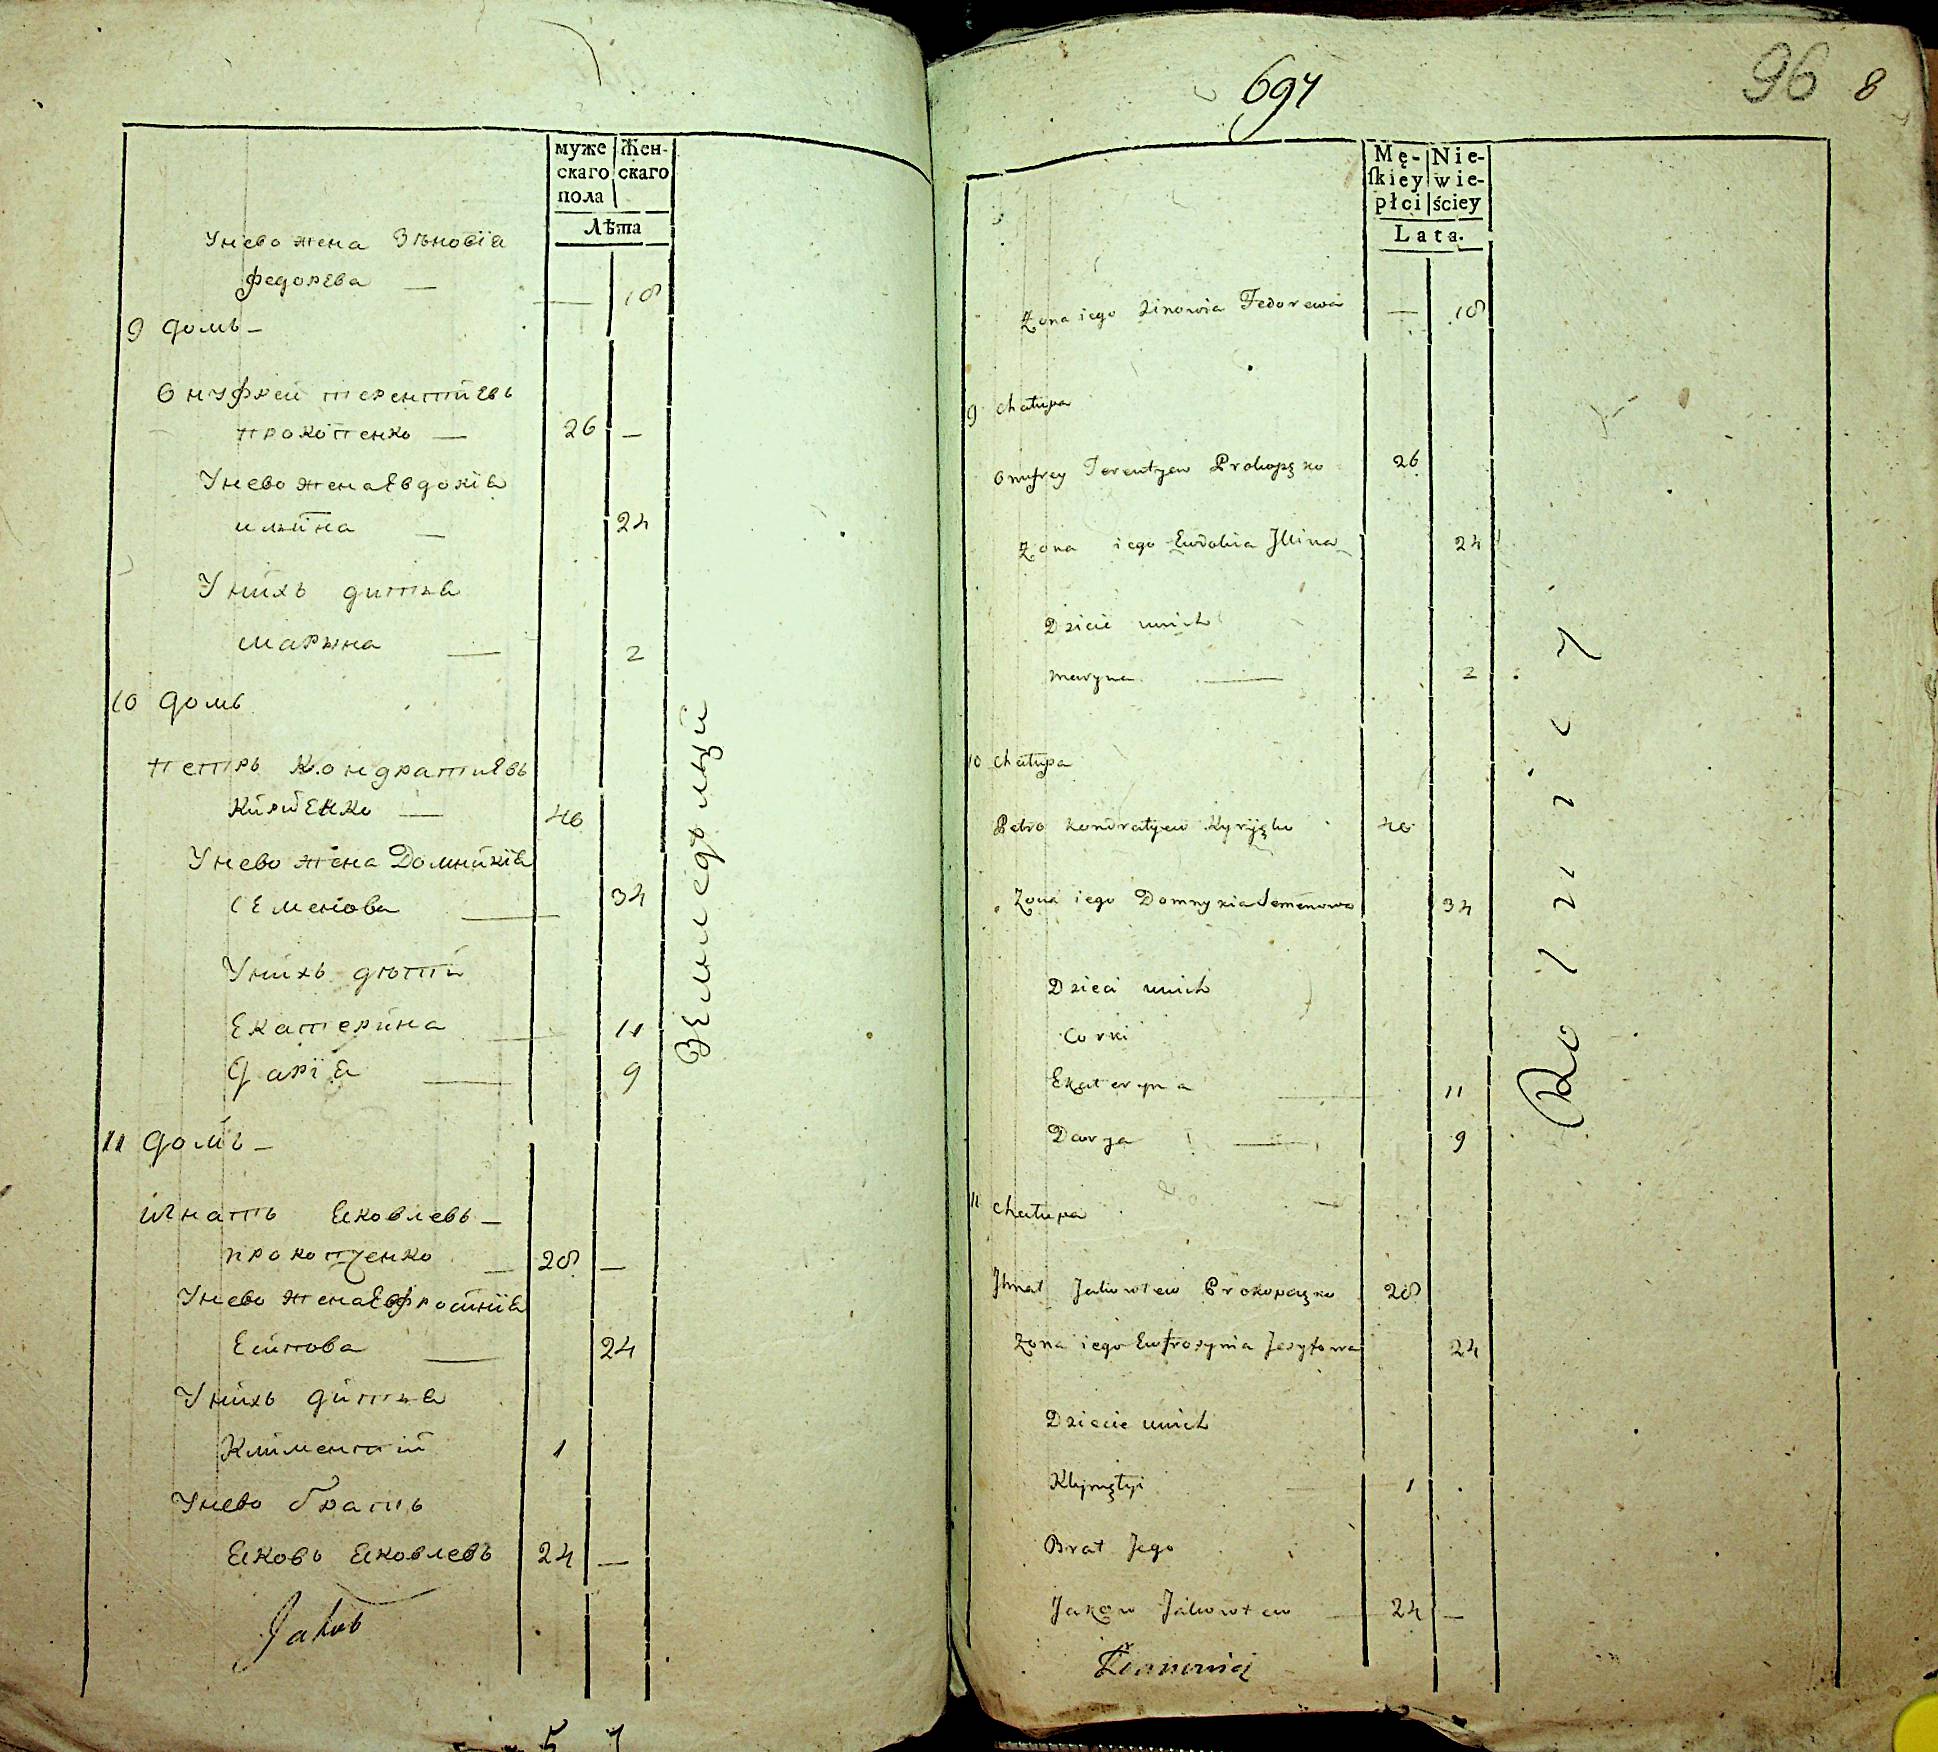 муже
скаго
пола
Жен-
скаго
Лѣта
Унево жена Зѣновïа
федорева — — 18
9 домъ —
Онуфрей терентïевъ
прокопенко — 26 —
Унево жена Евдокïа
илïина — 24
Унихъ дитяа
марына — 2
10 домъ
петръ Кондратиевъ
Кириенко — 46
Унево жена Домникïа
Семенова — 34
Унихъ дѣти
Екатерина — 11
дарïа — 9
11 домъ —
игнатъ Яковлевъ —
прокопченко — 28 —
Унево жена Ефросинïа
— 24
Унихъ дитяа
Климентий 1
Унево братъ
Яковъ Яковлевъ 24 —
Jakub
Земледѣлцй
694
96 8
Mę-
skiey
płci
Nie-
wie-
ściey
Lata.
Żona iego Zinowia Fedorewa — 18
9 chałupa
Onufrey Terentyew Prokopęko 26
Żona iego Ewdokia Illina 24
Dziecie unich
Maryna — 2
10 chałupa
Petro Kondratyew Kyryęko 46
Żona iego Domnykia Semenowa 34
Dzieci unich
Corki
Ekateryna — 11
Darya — 9
11 chałupa
Jhnat Jakowlew Prokopczęko 28
Żona iego Ewfrosynia Jesyfowa 24
Dziecie unich
Klymętyi — 1
Brat Jego
Jakow Jakowlew — 24 —
Rolnicy